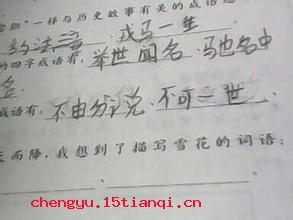 ”一样与历史故事有关的成语
约法三章 戎马一生
的四字成语有：举世闻名、驰名中
成语有：不由分说、不可一世.
而降，我想到了描写雪花的词语：
chengyu.15tianqi.cn